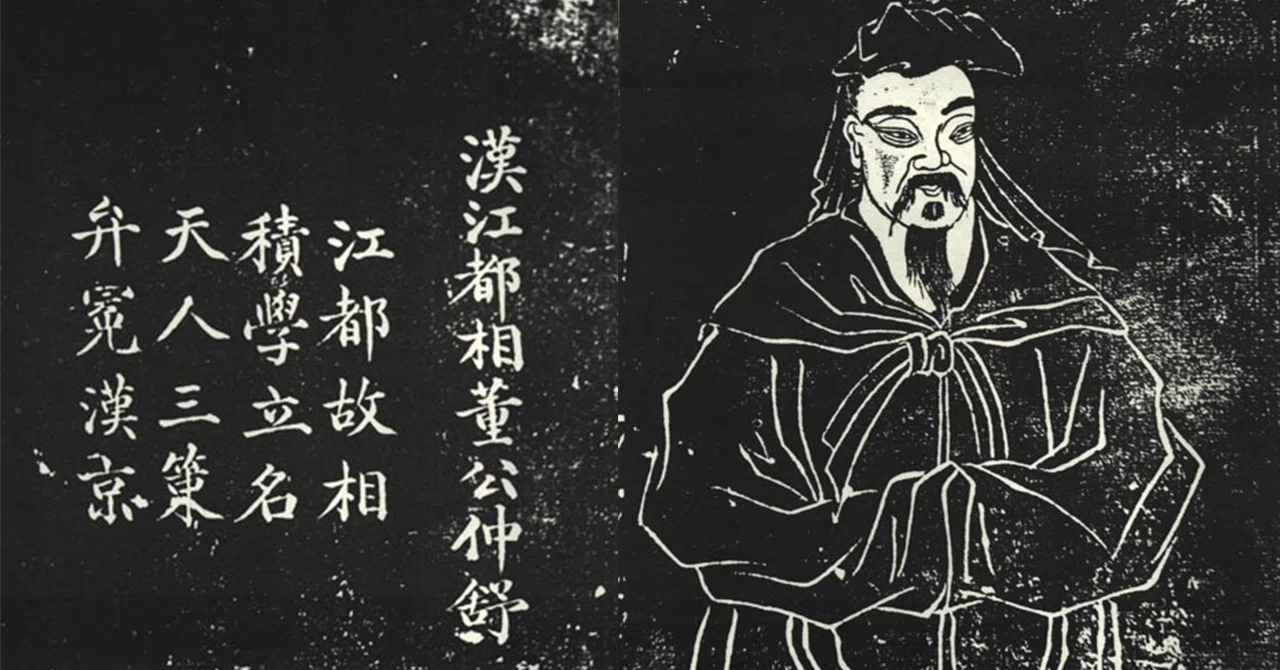 漢江都相董公仲舒
江都故相
積學立名
天人三策
弁冕漢京